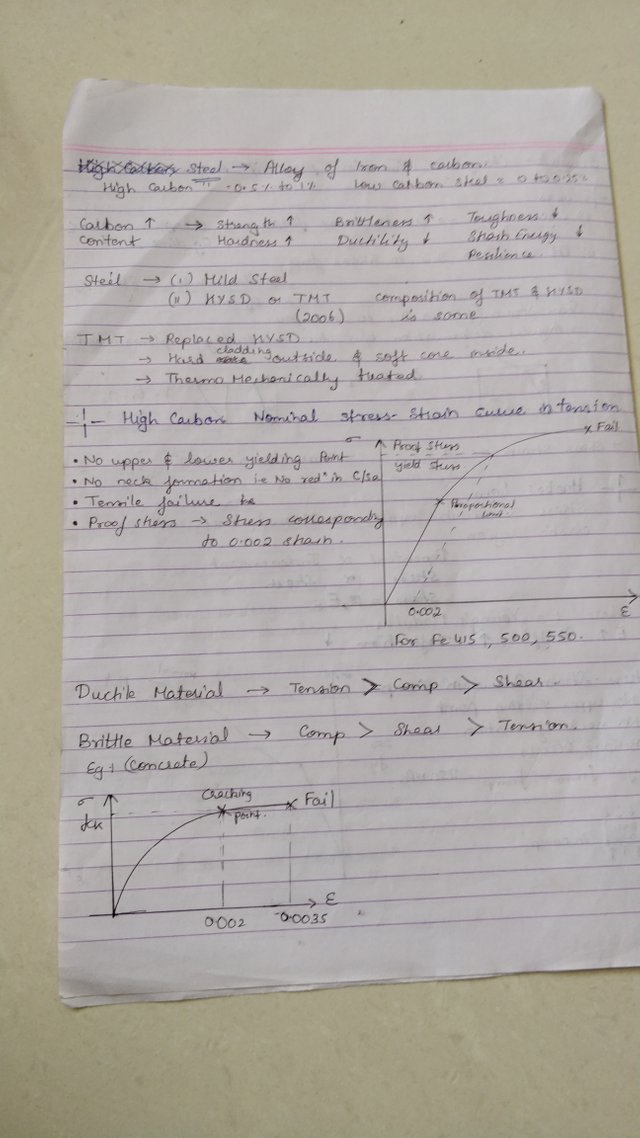 High Carbon Steel → Alloy of Iron & carbon.
High Carbon " = 0.5% to 1% Low Carbon Steel = 0 to 0.25%
Carbon ↑ → Strength ↑ Brittleness ↑ Toughness ↓
Content Hardness ↑ Ductility ↓ Strain Energy ↓
Resilience.
Steel → (i) Mild Steel
(ii) HYSD or TMT composition of TMT & HYSD
(2006) is same
TMT → Replaced HYSD
→ Hard cladding outside & soft core inside.
→ Thermo Mechanically treated.
High Carbon Nominal stress-strain curve in tension
• No upper & lower yielding Point
• No neck formation i.e No redⁿ in C/Sa
• Tensile failure
• Proof stress → Stress correspondg
to 0.002 strain.
σ
Proof Stress
yield stress
Fail
Proportional
Limit
0.002
ε
For Fe 415, 500, 550.
Ductile Material → Tension > Comp > Shear
Brittle Material → Comp > Shear > Tension.
Eg: (Concrete)
σ
fck
Cracking
point.
Fail
ε
0.002
0.0035